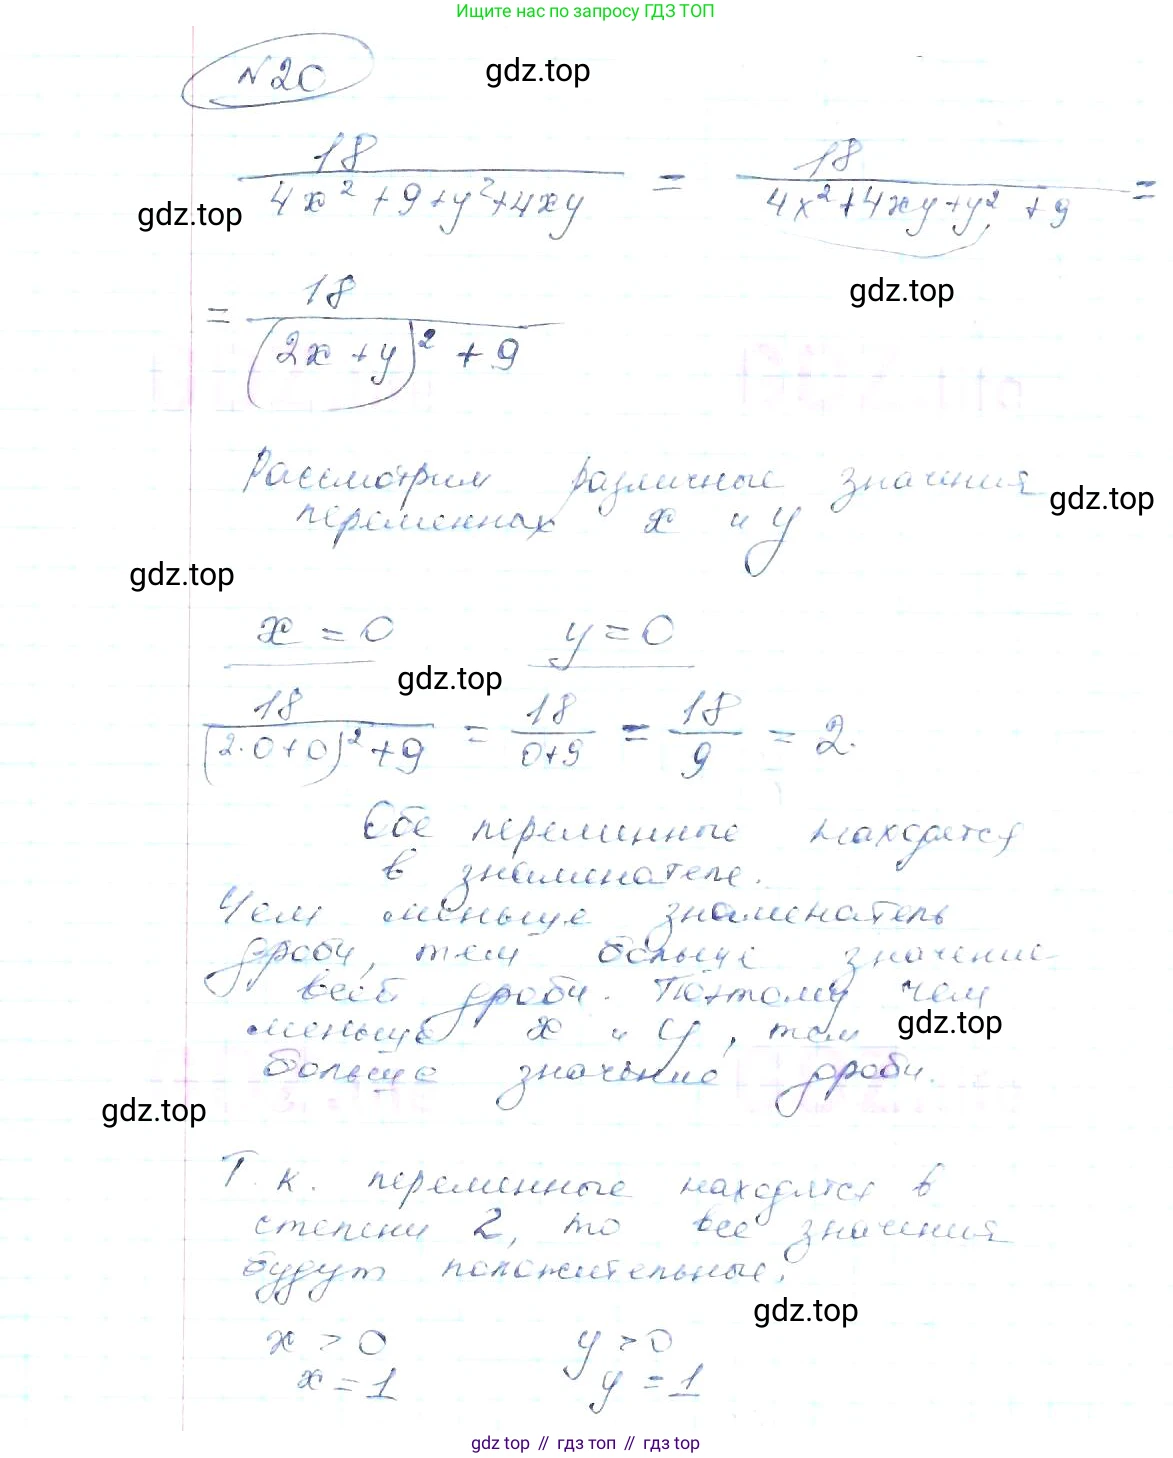 Ищите нас по запросу ГДЗ ТОП
N20
gdz.top
18 / (4x² + 9 + y² + 4xy) = 18 / (4x² + 4xy + y² + 9) =
gdz.top
gdz.top
= 18 / ((2x + y)² + 9)
Рассмотрим различные значения
gdz.top
переменных x и y
gdz.top
x = 0 y = 0
gdz.top
18 / ((2·0+0)² + 9) = 18 / (0+9) = 18 / 9 = 2.
Обе переменные находятся
в знаменателе.
Чем меньше знаменатель
дроби, тем больше значение
всей дроби. Поэтому чем
меньше x и y, тем
gdz.top
больше значение дроби.
gdz.top
Т.к. переменные находятся в
степени 2, то все значения
будут положительные.
gdz.top
x > 0 y > 0
x = 1 y = 1
gdz top // гдз топ // гдз top